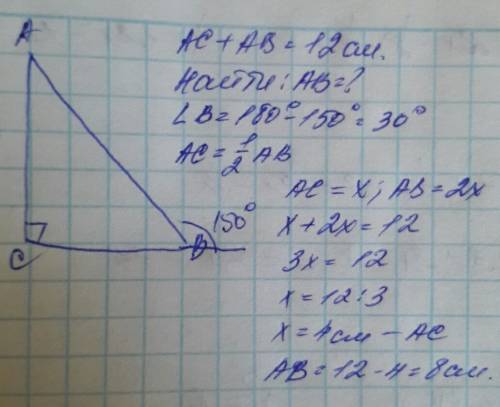 A
AC + AB = 12 см.
Найти: AB = ?
∠B = 180° - 150° = 30°
AC = 1/2 AB
AC = x; AB = 2x
150°
x + 2x = 12
C
B
3x = 12
x = 12 : 3
x = 4 см - AC
AB = 12 - 4 = 8 см.